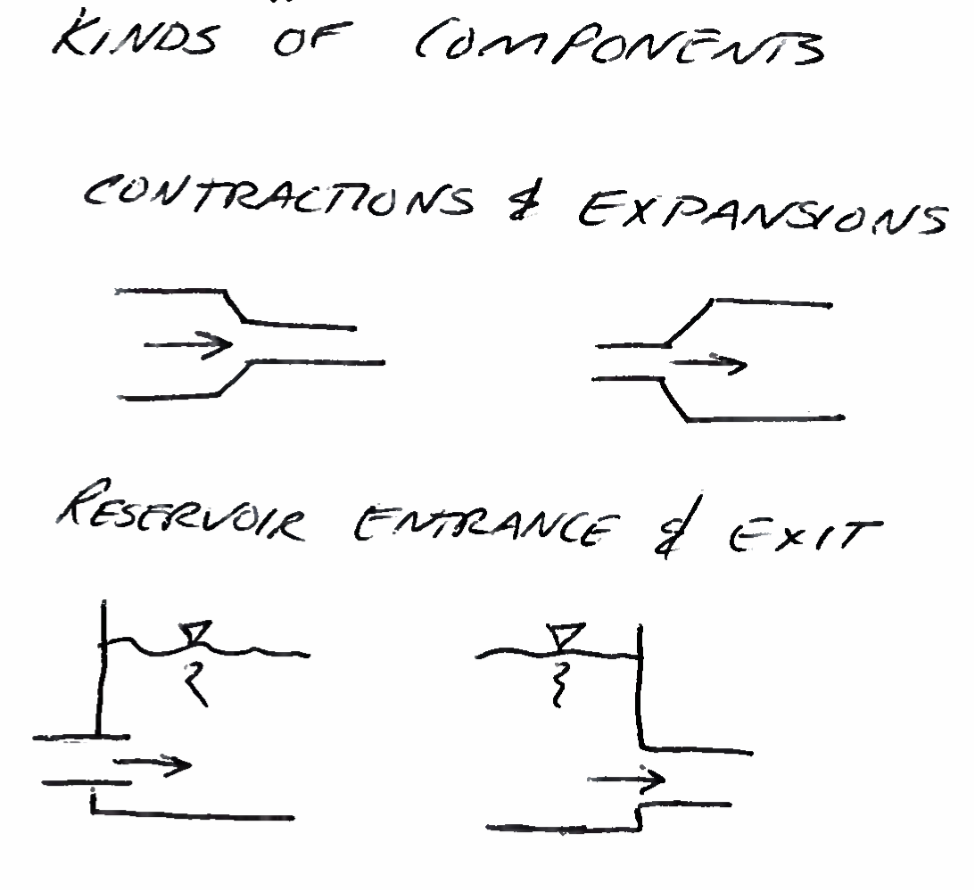 KINDS OF COMPONENTS
CONTRACTIONS & EXPANSIONS
RESERVOIR ENTRANCE & EXIT